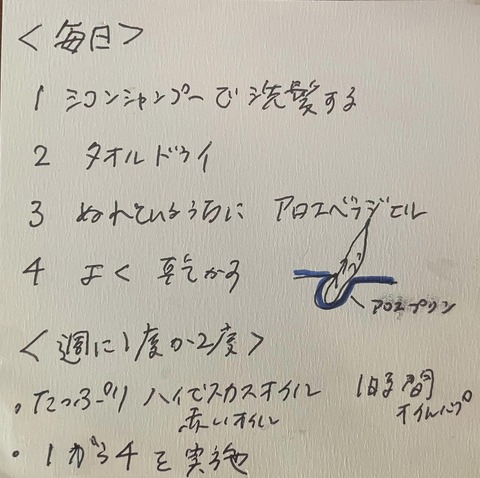 ＜毎日＞
1 シコンシャンプーで洗髪する
2 タオルドライ
3 ぬれているうちに アロエベラジェル
4 よく乾かす
アロエプリン
＜週に1度か2度＞
・たっぷり ハイビスカスオイル 1時間
赤いオイル オイルパック
・1から4を実施